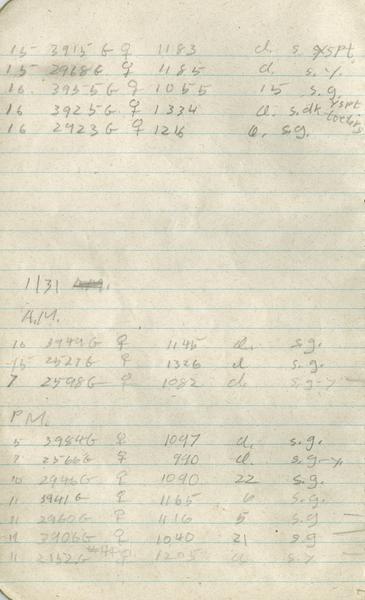 15 3915G ♀ 1183 d. s. yspt.
15 2968G ♀ 1185 d. s.y.
16 3955G ♀ 1055 15 s.g.
16 3925G ♀ 1334 d. s.dk yspt
16 2923G ♀ 1216 6. s.g.
1/31
A.M.
16 3949G ♀ 1145 d. s.g.
15 2527G ♀ 1326 d s.g.
7 2598G ♀ 1082 d. s.g-y
P.M.
5 3984G ♀ 1097 d. s.g.
7 2566G ♀ 990 d. s.g-y.
10 2946G ♀ 1090 22 s.g.
11 3941G ♀ 1165 6 s.g.
11 2960G ♀ 1116 5 s.g
11 3906G ♀ 1040 21 s.g
11 2152G 1205 d s.y